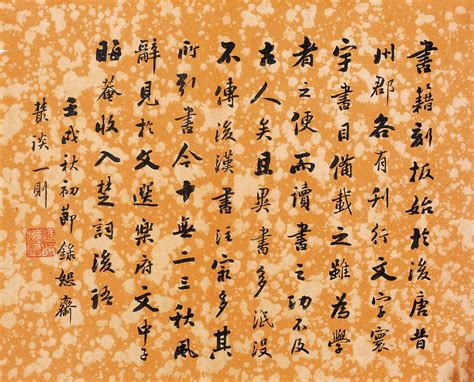 書籍刻板始於後唐昔
州郡各有刊行文字寰
宇書目備載之雖為學
者之便而讀書之功不及
古人矣且異書多泯沒
不傳後漢書注最多其
所引書今十無二三秋風
辭見於文選樂府文中子
晦菴收入楚詞後語
壬戌秋初節錄恕齋
叢談一則